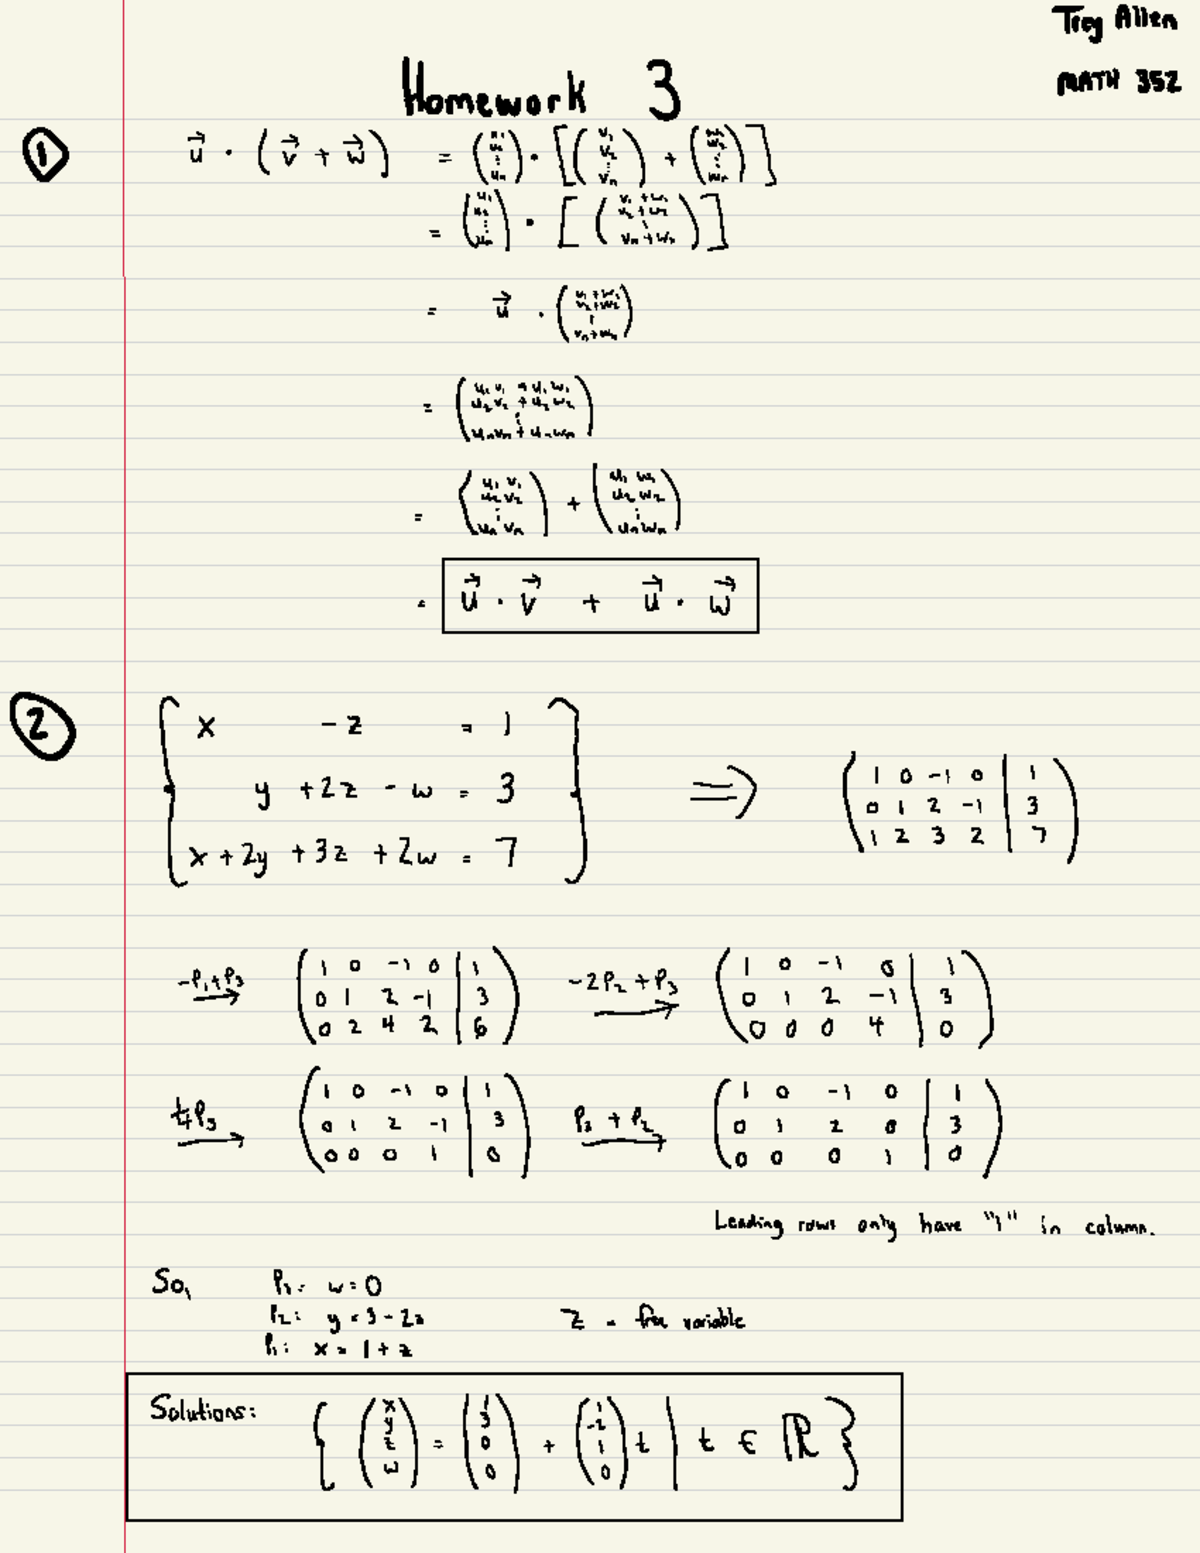 Troy Allen
MATH 352
Homework 3
1
u⃗ · (v⃗ + w⃗) = (u₁ u₂ ⋮ uₙ) · [(v₁ v₂ ⋮ vₙ) + (w₁ w₂ ⋮ wₙ)]
= (u₁ u₂ ⋮ uₙ) · [(v₁+w₁ v₂+w₂ ⋮ vₙ+wₙ)]
= u⃗ · (v₁+w₁ v₂+w₂ ⋮ vₙ+wₙ)
= (u₁v₁ + u₁w₁ u₂v₂ + u₂w₂ ⋮ uₙvₙ + uₙwₙ)
= (u₁v₁ u₂v₂ ⋮ uₙvₙ) + (u₁w₁ u₂w₂ ⋮ uₙwₙ)
= u⃗ · v⃗ + u⃗ · w⃗
2
x - z = 1
y + 2z - w = 3
x + 2y + 3z + 2w = 7
⇒
1 0 -1 0 | 1
0 1 2 -1 | 3
1 2 3 2 | 7
-P₁+P₃ →
1 0 -1 0 | 1
0 1 2 -1 | 3
0 2 4 2 | 6
-2P₂+P₃ →
1 0 -1 0 | 1
0 1 2 -1 | 3
0 0 0 4 | 0
¼P₃ →
1 0 -1 0 | 1
0 1 2 -1 | 3
0 0 0 1 | 0
P₃ + P₂ →
1 0 -1 0 | 1
0 1 2 0 | 3
0 0 0 1 | 0
Leading rows only have "1" in column.
So, P₃: w=0
P₂: y = 3-2z z = free variable
P₁: x = 1+z
Solutions: { (x y z w) = (1 3 0 0) + (1 -2 1 0) t | t ∈ ℝ }